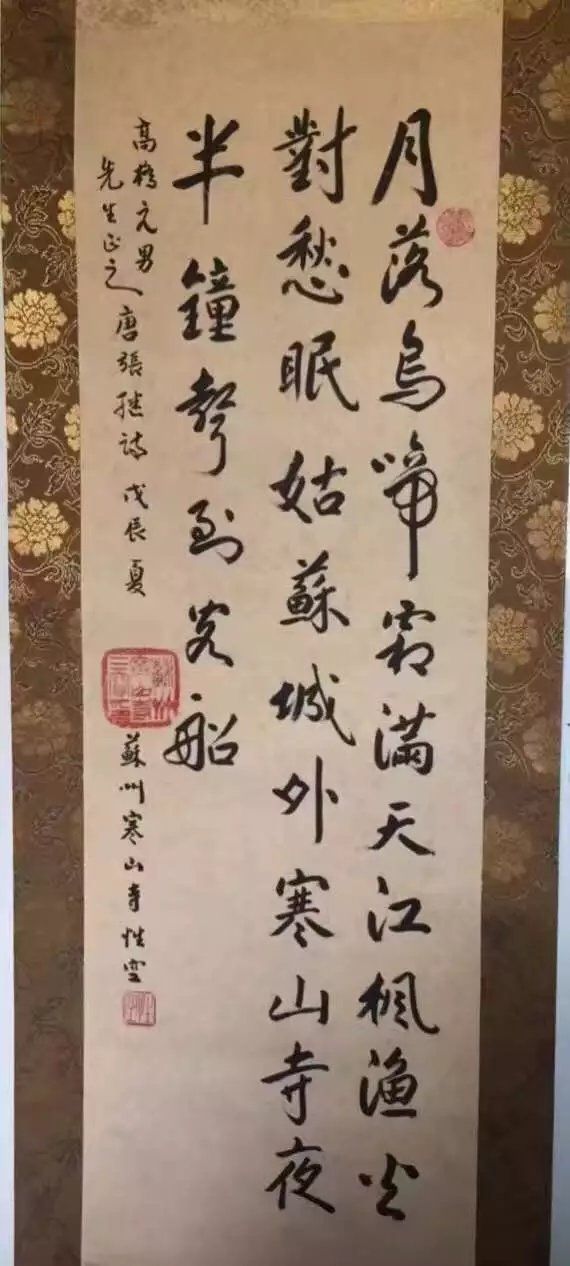 月落烏啼霜滿天江楓漁火
對愁眠姑蘇城外寒山寺夜
半鐘聲到客船
高橋元男
先生正之
唐張繼詩 戊辰夏
蘇州寒山寺性空